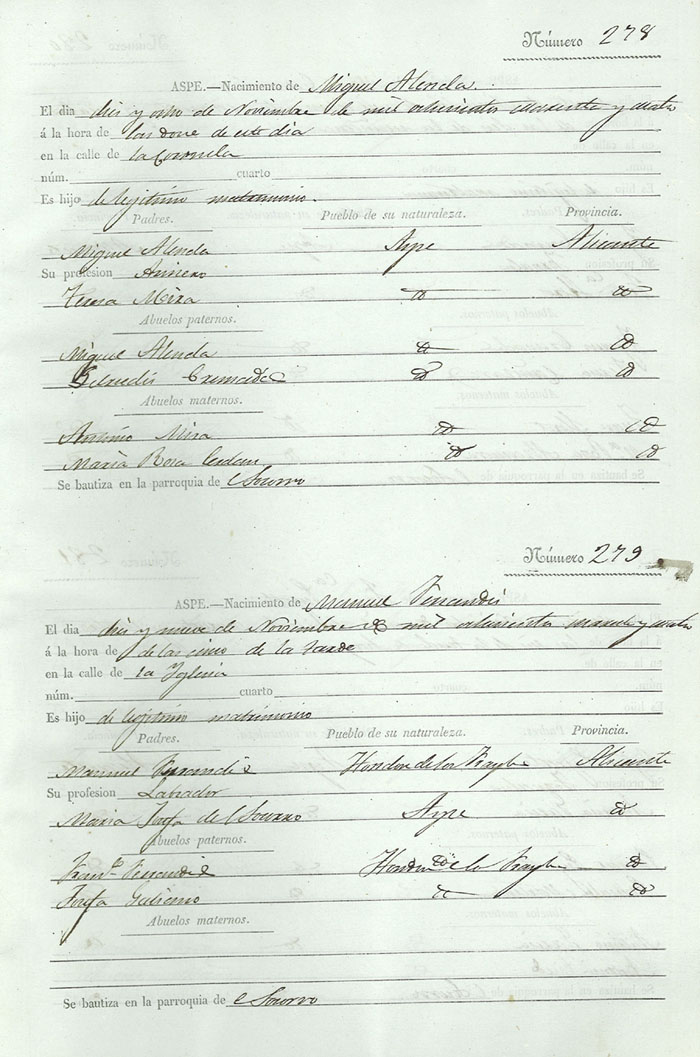 Número 278
ASPE.—Nacimiento de Miguel Alenda.
El dia diez y ocho de Noviembre de mil ochocientos cuarenta y cuatro
á la hora de las doce de este dia
en la calle de la Coronela
núm. cuarto
Es hijo de legitimo matrimonio.
Padres. Pueblo de su naturaleza. Provincia.
Miguel Alenda Aspe Alicante
Su profesion Arriero
Teresa Mira id id
Abuelos paternos.
Miguel Alenda id id
Cremades id id
Abuelos maternos.
Antonio Mira id id
Maria Rosa Cerdan id id
Se bautiza en la parroquia de el Socorro
Número 279
ASPE.—Nacimiento de Manuel Ferrandis
El dia diez y nueve de Noviembre de mil ochocientos cuarenta y cuatro
á la hora de de las cinco de la tarde
en la calle de la Yglesia
núm. cuarto
Es hijo de legitimo matrimonio
Padres. Pueblo de su naturaleza. Provincia.
Manuel Ferrandis Hondon de los Frayles Alicante
Su profesion Labrador
Maria Josefa del Socorro Aspe id
Abuelos paternos.
Franco. Ferrandis Hondon de los Frayles id
Josefa id id
Abuelos maternos.
Se bautiza en la parroquia de el Socorro